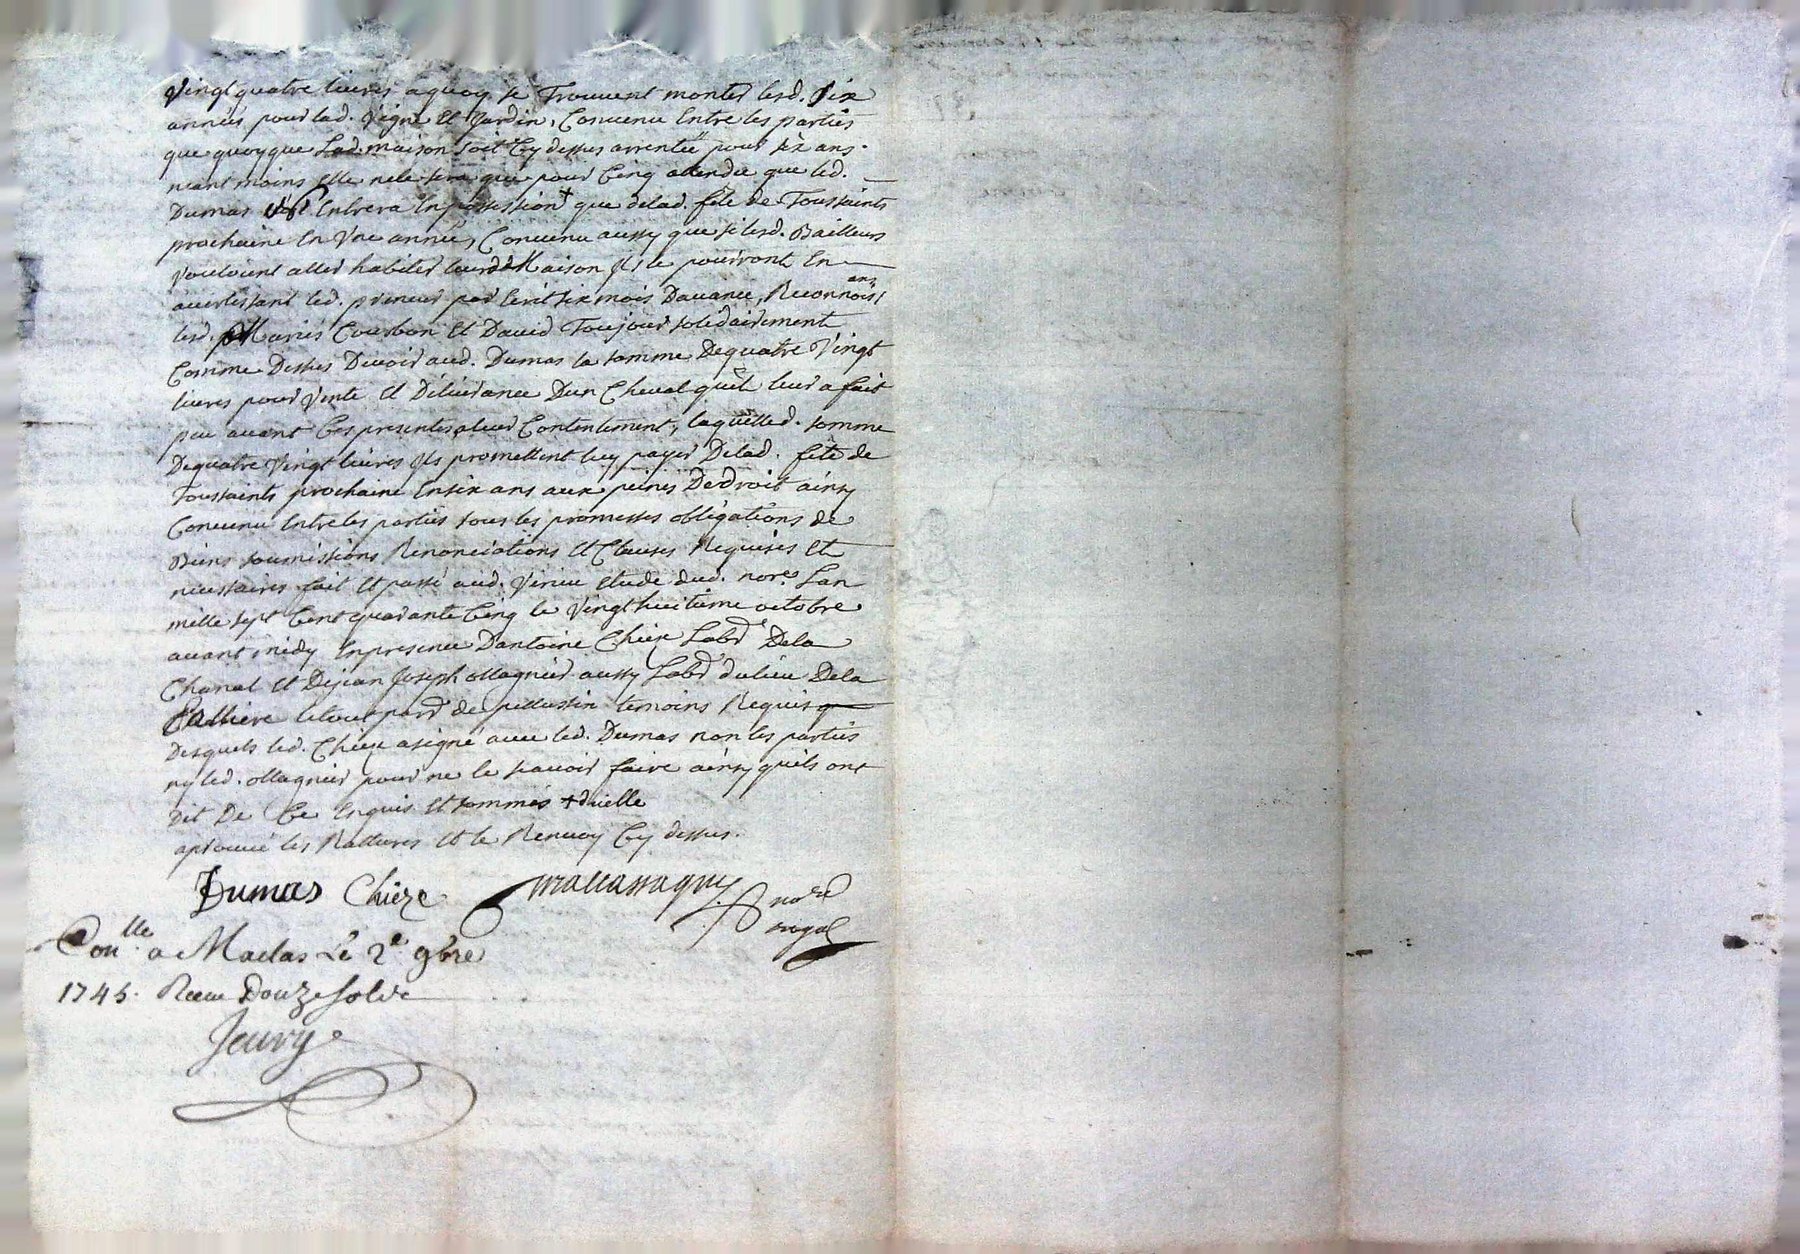 Vingt quatre livres aquoy se Trouvent monter lesd. six
années pour lad. Vigne Et Jardin, Convenu Entre les parties
que quoyque Lad. maison soit Cy dessus arrentée pour six ans
neantmoins Elle ne le sera que pour Cinq attendu que led.
Dumas Entrera En possession + que de lad. fête de Toussaints
prochaine En Vne année, Convenu aussy que si lesd. Bailleurs
Vouloient aller habiter leurd. Maison Ils le pourront En
avertissant led. preneur par Ecrit six mois Davance, Reconnoissans
lesd. Mariés Courbon Et David Toujour solidairement
Comme Dessus Devoir aud. Dumas la somme Dequatre Vingt
livres pour Vente Et Délivrance Dun Cheval quil leur a fait
peu avant Ces presentes aleur Contentement, laquelled. somme
Dequatre Vingt livres Ils promettent luy payer Delad. fête de
Toussaints prochaine Ensix ans aux peines Dedroit ainsy
Convenu Entre les parties sous les promesses obligations de
Biens soumissions Renonciations Et Clauses Requises Et
necessaires fait Et passé aud. Virieu Etude dud. nore. Lan
mille sept Cent quarante Cinq le Vingthuitieme octobre
avant midy Enpresence Dantoine Chieze Labr. Dela
Chanal Et Dejean Joseph ollagnier aussy Labr. dulieu Dela
Valliere letout parr. de pellussin temoins Requis
Desquels led. Chieze asigné avec led. Dumas non les parties
ny led. ollagnier pour ne le scavoir faire ainsy quils ont
Dit De Ce Enquis Et sommés + dicelle
aprouvé les Ratures Et le Renvoy Cy dessus.
Dumas Chieze
nore
royal
Conlle a Maclas Le 2e 9bre
1745. Receu Douze sols